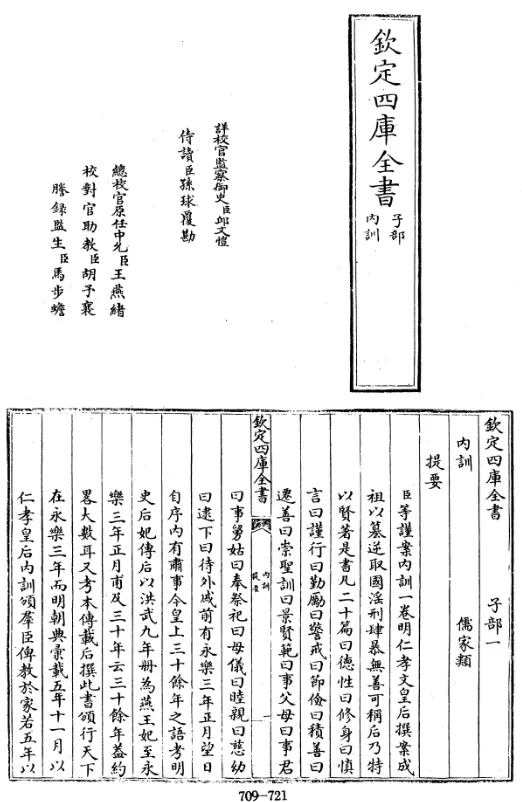 欽定四庫全書
子部
內訓
詳校官監察御史臣邱文愷
侍讀臣孫球覆勘
總校官原任中允臣王燕緒
校對官助教臣胡予襄
謄錄監生臣馬步蟾
欽定四庫全書 子部一
內訓 儒家類
提要
臣等謹案內訓一卷明仁孝文皇后撰案成
祖以篡逆取國淫刑肆暴無善可稱后乃特
以賢著是書凡二十篇曰德性曰修身曰慎
言曰謹行曰勤勵曰警戒曰節儉曰積善曰
遷善曰崇聖訓曰景賢範曰事父母曰事君
欽定四庫全書
內訓
提要
一
曰事舅姑曰奉祭祀曰母儀曰睦親曰慈幼
曰逮下曰待外戚前有永樂三年正月望日
自序內有肅事今皇上三十餘年之語考明
史后妃傳后以洪武九年册為燕王妃至永
樂三年正月甫及三十年云三十餘年蓋約
畧大數耳又考本傳載后撰此書頒行天下
在永樂三年而明朝典彙載五年十一月以
仁孝皇后內訓頒羣臣俾教於家若五年以
709-721